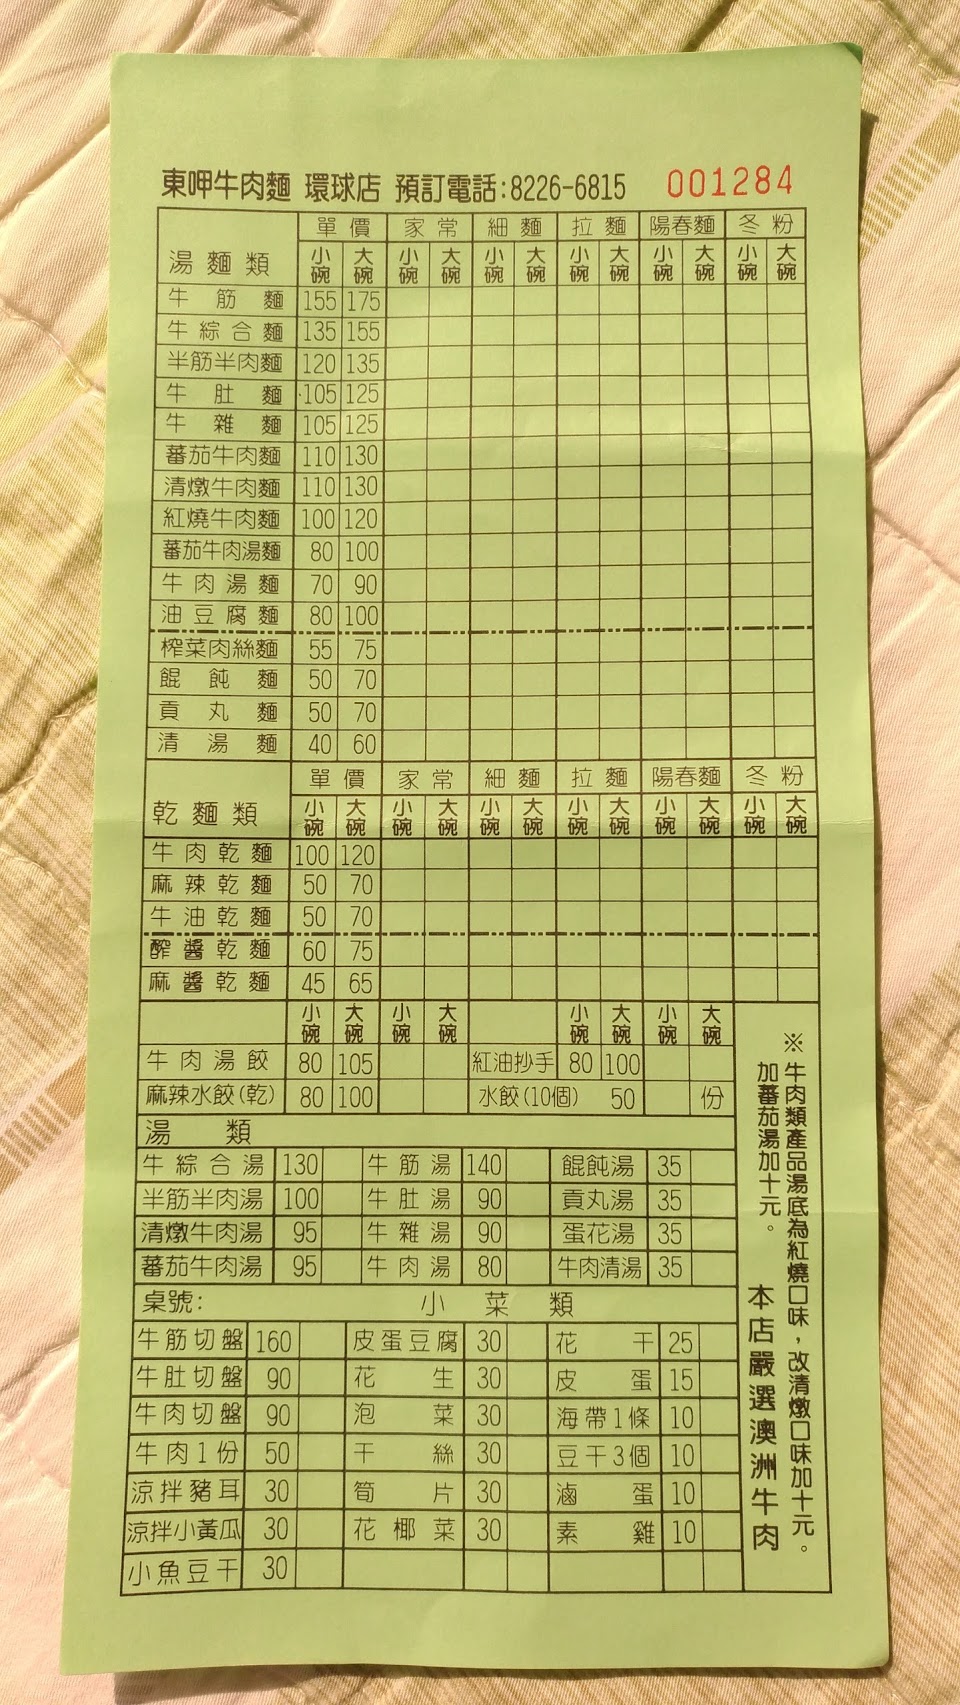 東呷牛肉麵 環球店 預訂電話:8226-6815 001284
湯麵類 單價 家常 細麵 拉麵 陽春麵 冬粉
小碗 大碗 小碗 大碗 小碗 大碗 小碗 大碗 小碗 大碗 小碗 大碗
牛筋麵 155 175
牛綜合麵 135 155
半筋半肉麵 120 135
牛肚麵 105 125
牛雜麵 105 125
蕃茄牛肉麵 110 130
清燉牛肉麵 110 130
紅燒牛肉麵 100 120
蕃茄牛肉湯麵 80 100
牛肉湯麵 70 90
油豆腐麵 80 100
榨菜肉絲麵 55 75
餛飩麵 50 70
貢丸麵 50 70
清湯麵 40 60
乾麵類 單價 家常 細麵 拉麵 陽春麵 冬粉
小碗 大碗 小碗 大碗 小碗 大碗 小碗 大碗 小碗 大碗 小碗 大碗
牛肉乾麵 100 120
麻辣乾麵 50 70
牛油乾麵 50 70
醡醬乾麵 60 75
麻醬乾麵 45 65
小碗 大碗 小碗 大碗 小碗 大碗 小碗 大碗
牛肉湯餃 80 105 紅油抄手 80 100
麻辣水餃(乾) 80 100 水餃(10個) 50 份
湯類
牛綜合湯 130 牛筋湯 140 餛飩湯 35
半筋半肉湯 100 牛肚湯 90 貢丸湯 35
清燉牛肉湯 95 牛雜湯 90 蛋花湯 35
蕃茄牛肉湯 95 牛肉湯 80 牛肉清湯 35
桌號: 小菜類
牛筋切盤 160 皮蛋豆腐 30 花干 25
牛肚切盤 90 花生 30 皮蛋 15
牛肉切盤 90 泡菜 30 海帶1條 10
牛肉1份 50 干絲 30 豆干3個 10
涼拌豬耳 30 筍片 30 滷蛋 10
涼拌小黃瓜 30 花椰菜 30 素雞 10
小魚豆干 30
※牛肉類產品湯底為紅燒口味，改清燉口味加十元。
加蕃茄湯加十元。
本店嚴選澳洲牛肉